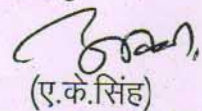 (ए.के.सिंह)